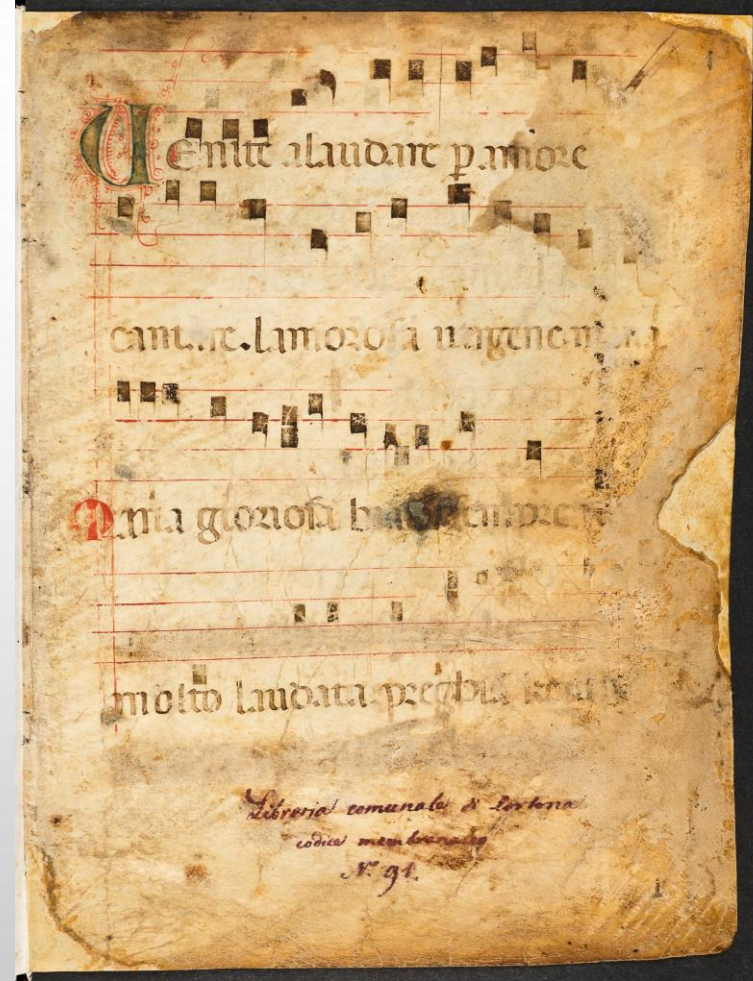 Venite alaudare p amore
cantare. lamorosa uirgene maria
Maria gloriosa biata sempre
molto laudata. preghia
Libreria comunale di Cortona
codice membranaceo
N.° 91.
1